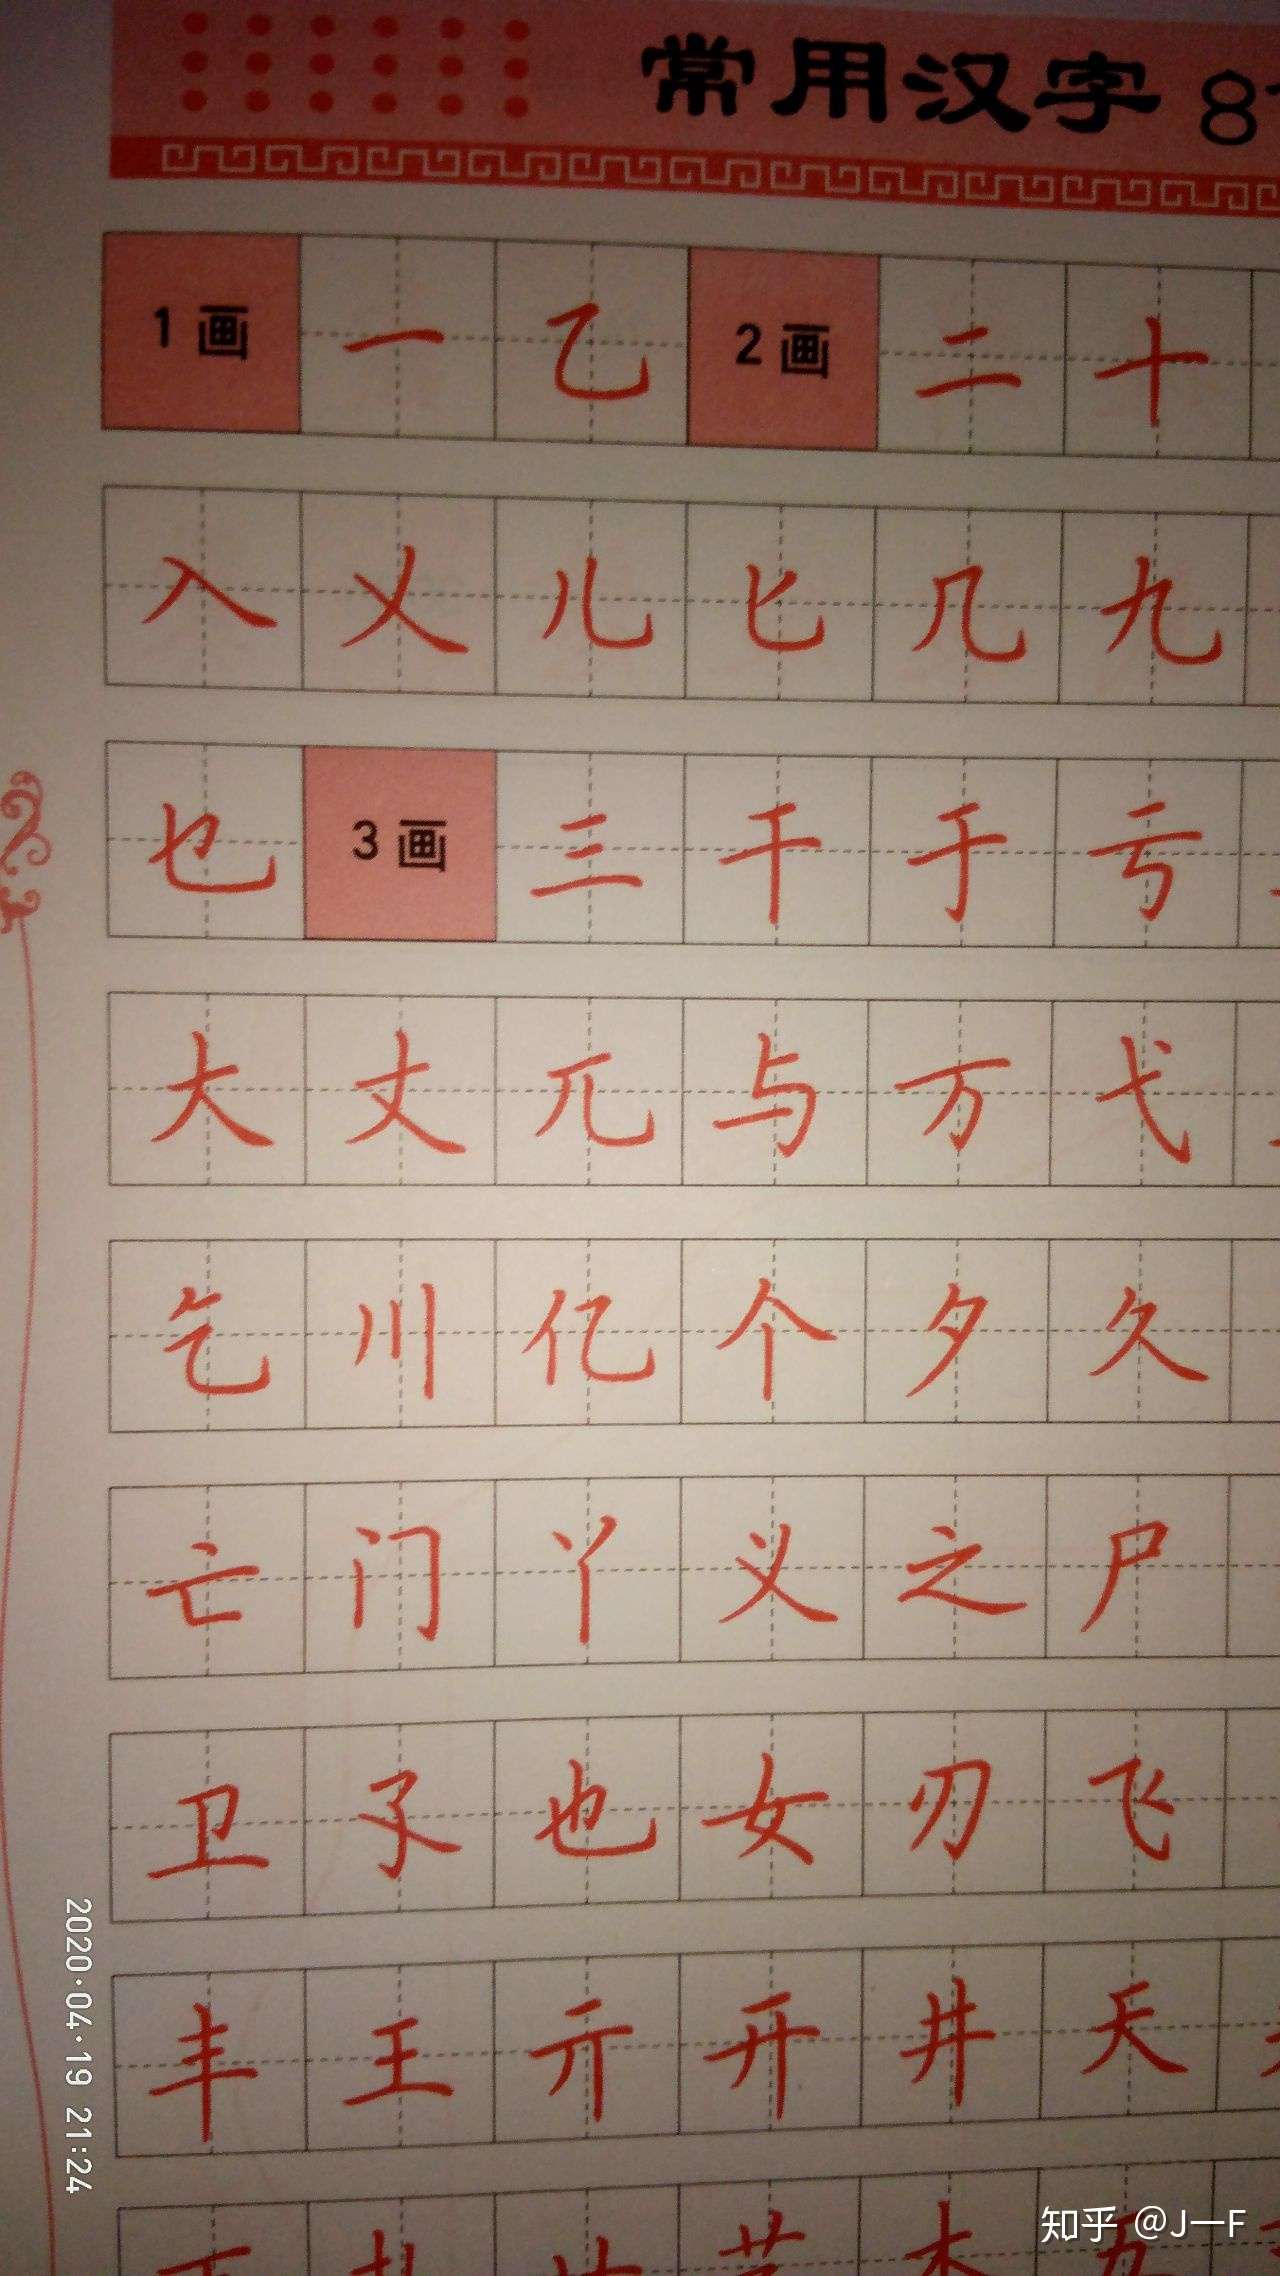 常用汉字 8
1画 一 乙 2画 二 十
入 乂 儿 匕 几 九
乜 3画 三 干 于 亏
大 丈 兀 与 万 弋
乞 川 亿 个 夕 久
亡 门 丫 义 之 尸
卫 孓 也 女 刃 飞
丰 王 亍 开 井 天
艺 木 五
2020·04·19 21:24
知乎 @J—F